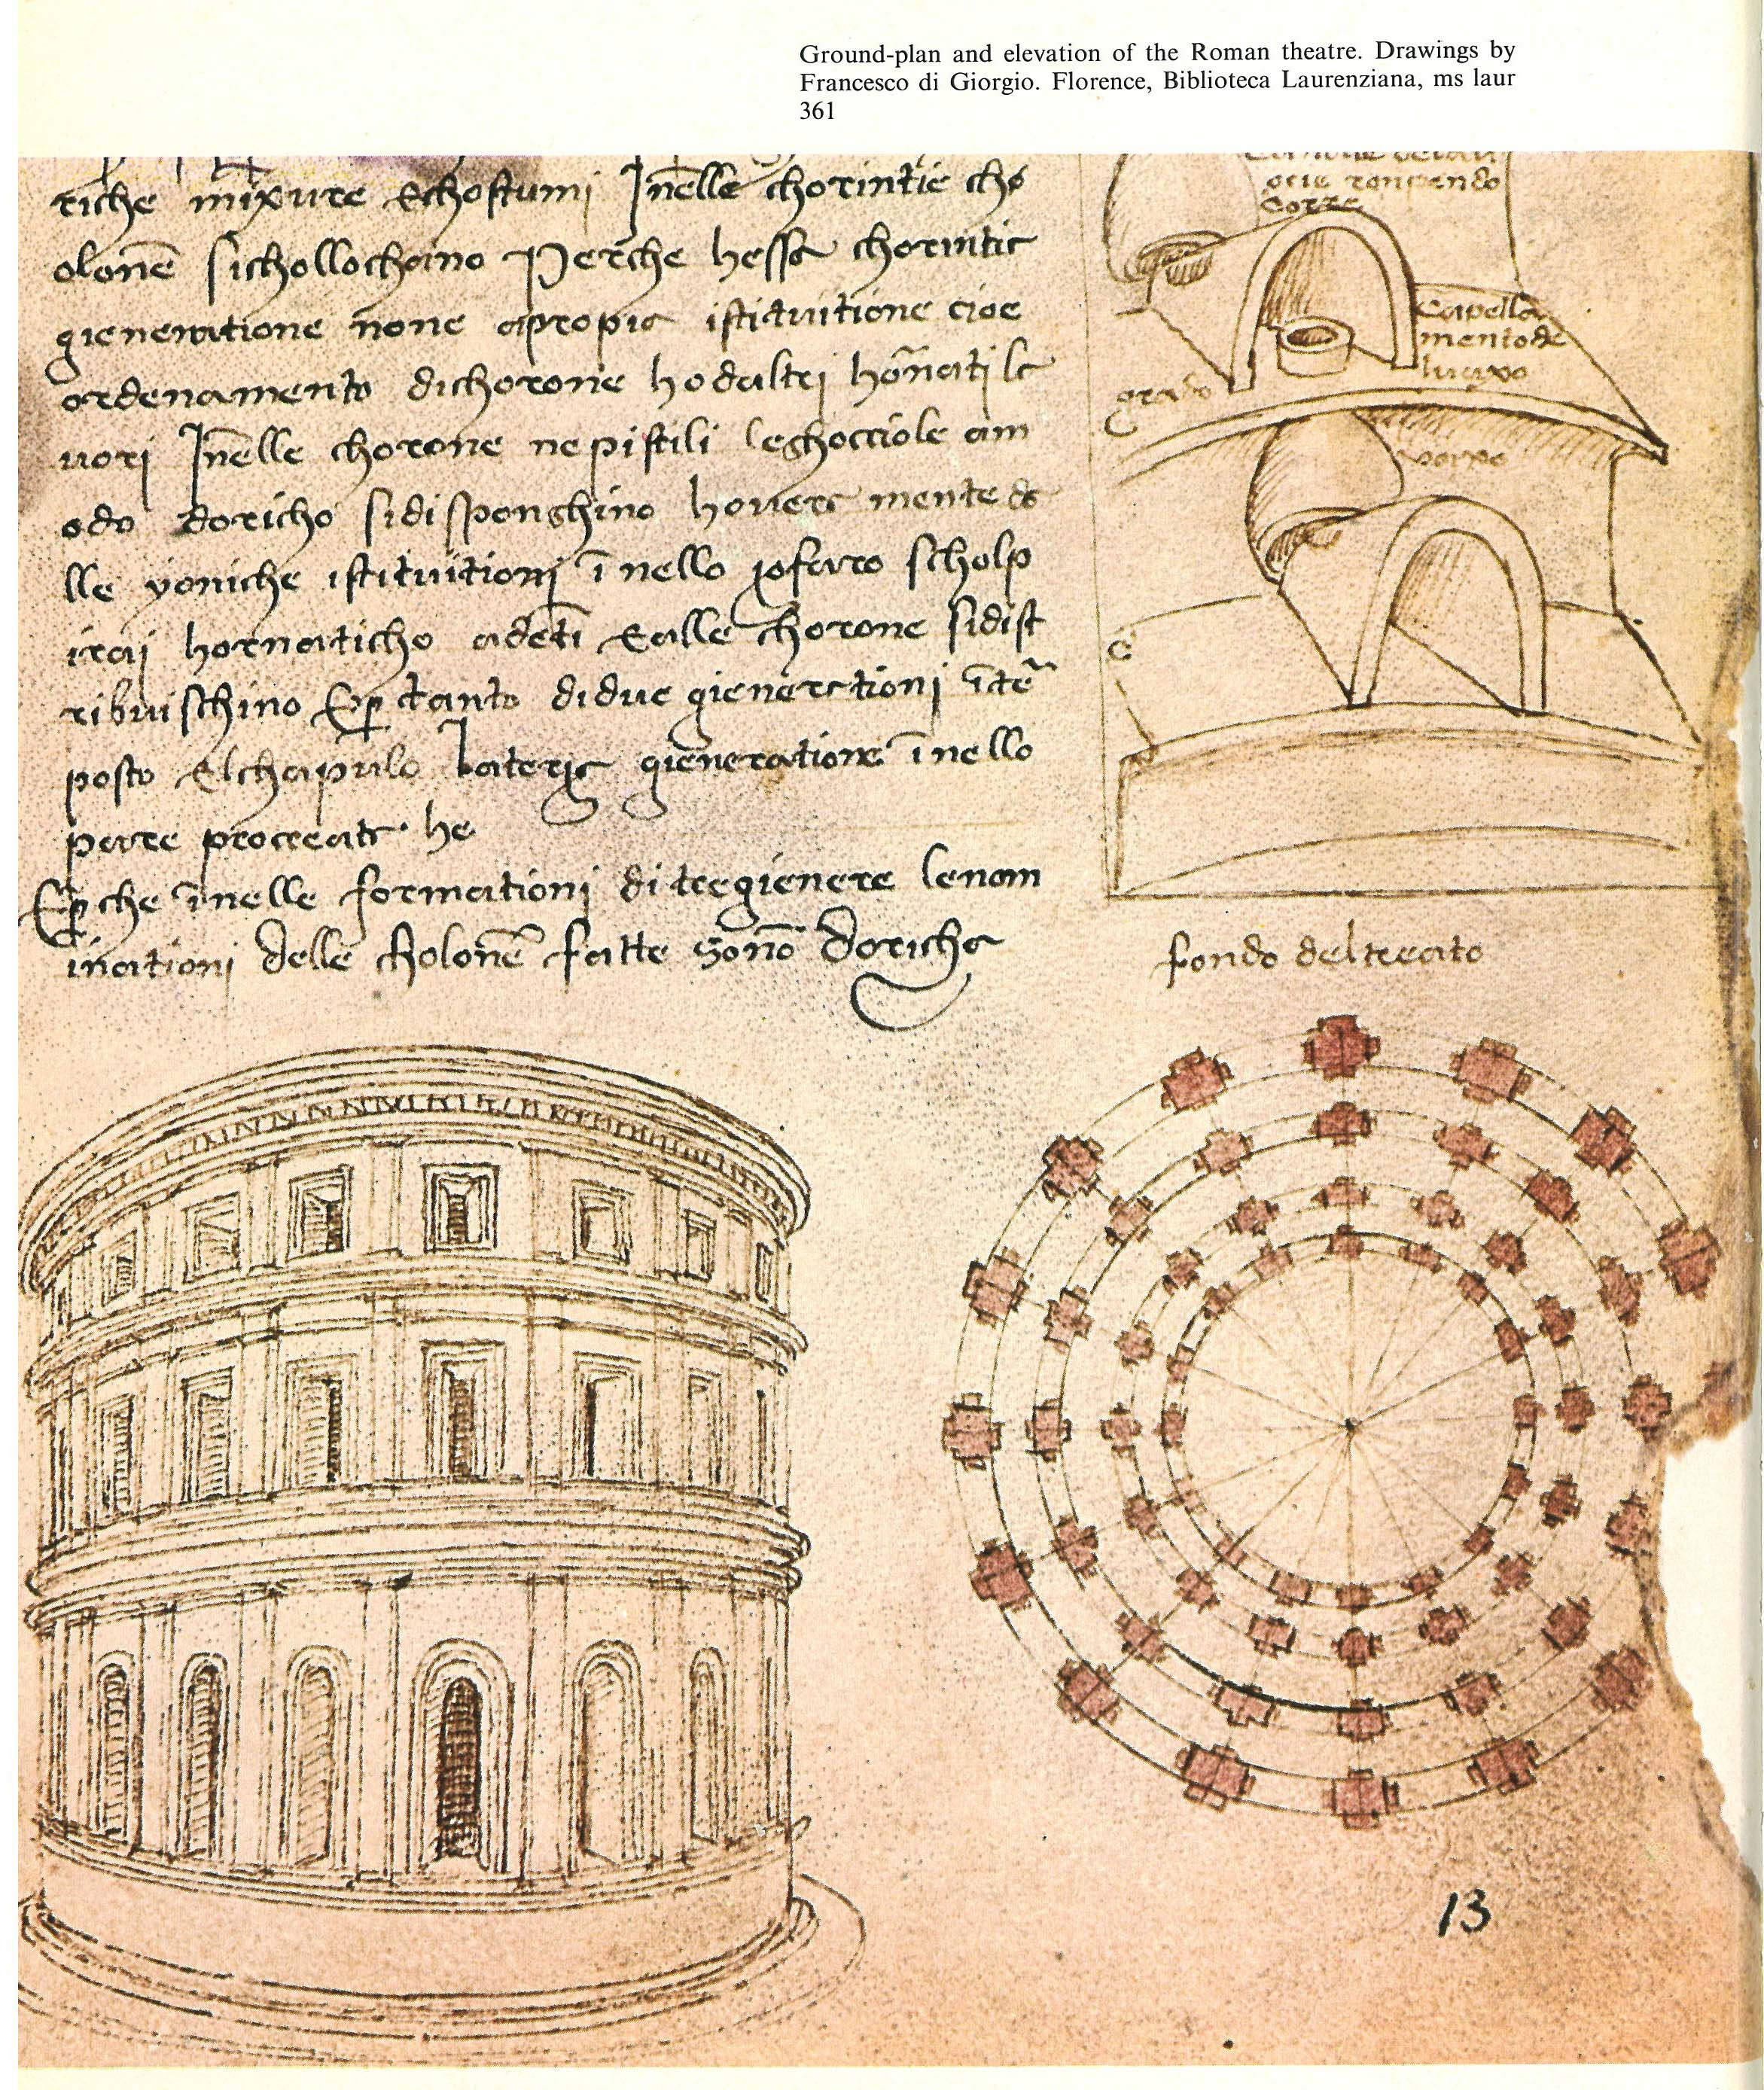 Ground-plan and elevation of the Roman theatre. Drawings by
Francesco di Giorgio. Florence, Biblioteca Laurenziana, ms laur
361
riche mixure Echostumi Inelle chorintie cho
olone sichollochano Perche hessa chorintia
gieneratione none apropia istituitione cioe
ordenamento dichorone hodaltri
uori Inelle chorone nepistili leghocciole am
odo doricho sidisponghino
lle yoniche istituitioni inello scholp
irai hornaticho Ealle chorone sidist
ribuischino tanto didue gienerationi
posto Elchapulo gieneratione inello
pare procreata he
che inelle formationi di tregienere lenom
inationi delle cholone fatte sono doricha
orie ronpendo
corre
Capella
mento de
luaxo
grado
vaxo
C
fondo del teeato
13